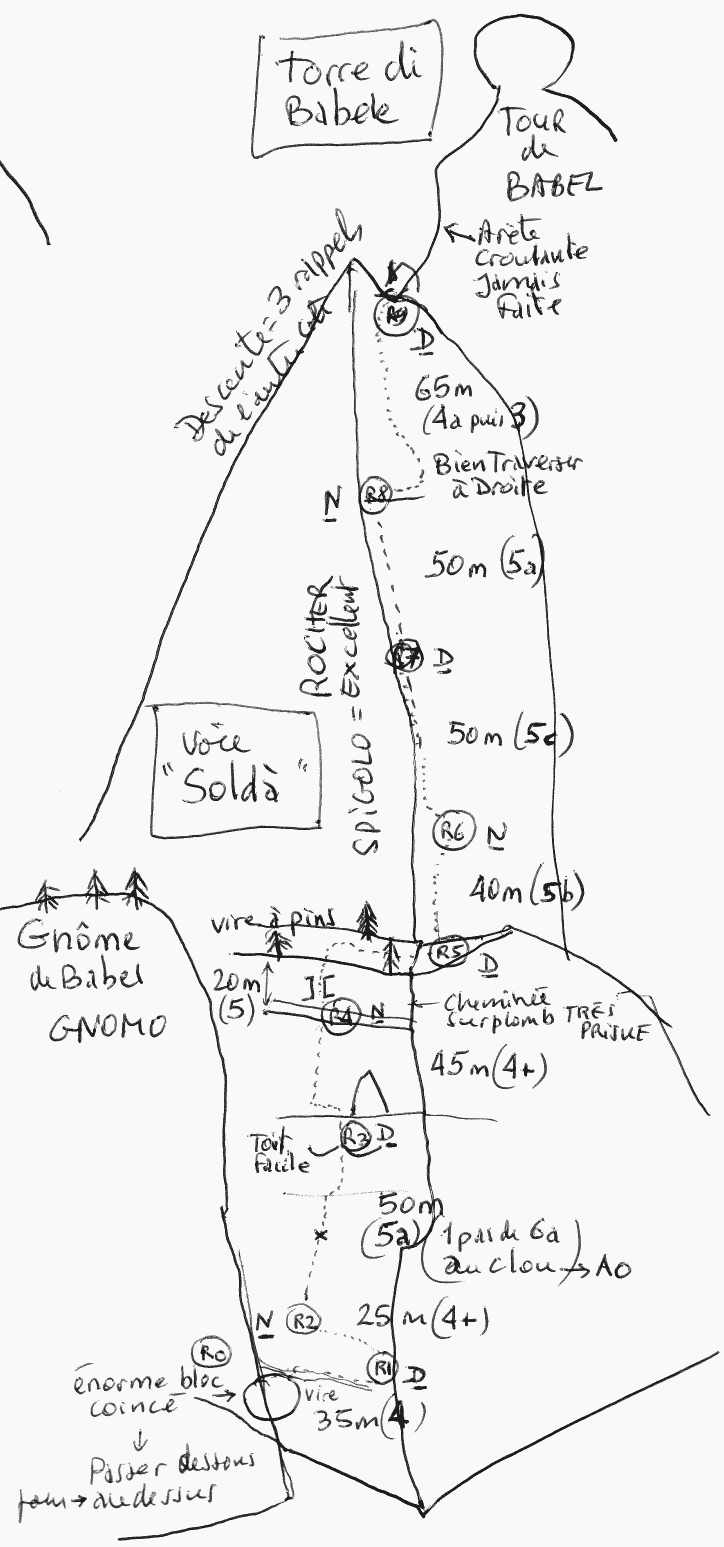 Torre di
Babele
TOUR
de
BABEL
Arête
Croulante
Jamais
Faite
Descente = 3 rappels
de l'autre côté
R9
D
65m
(4a puis 3)
Bien Traverser
à Droite
N
R8
50m (5a)
ROCHER
SPIGOLO = Excellent
R7
D
50m (5c)
Voie
"Soldà"
R6
N
40m (5b)
vire à pins
R5
D
Gnôme
de Babel
GNOMO
20m
(5)
R4
N
Cheminée
Surplomb TRÈS
PRISUE
45m (4+)
Toit
facile
R3
D
50m
(5a)
(1 pas de 6a
au clou) → A0
N
R2
25m (4+)
R0
énorme bloc
coincé →
R1
D
vire
35m (4)
Passer dessous
→ au dessus